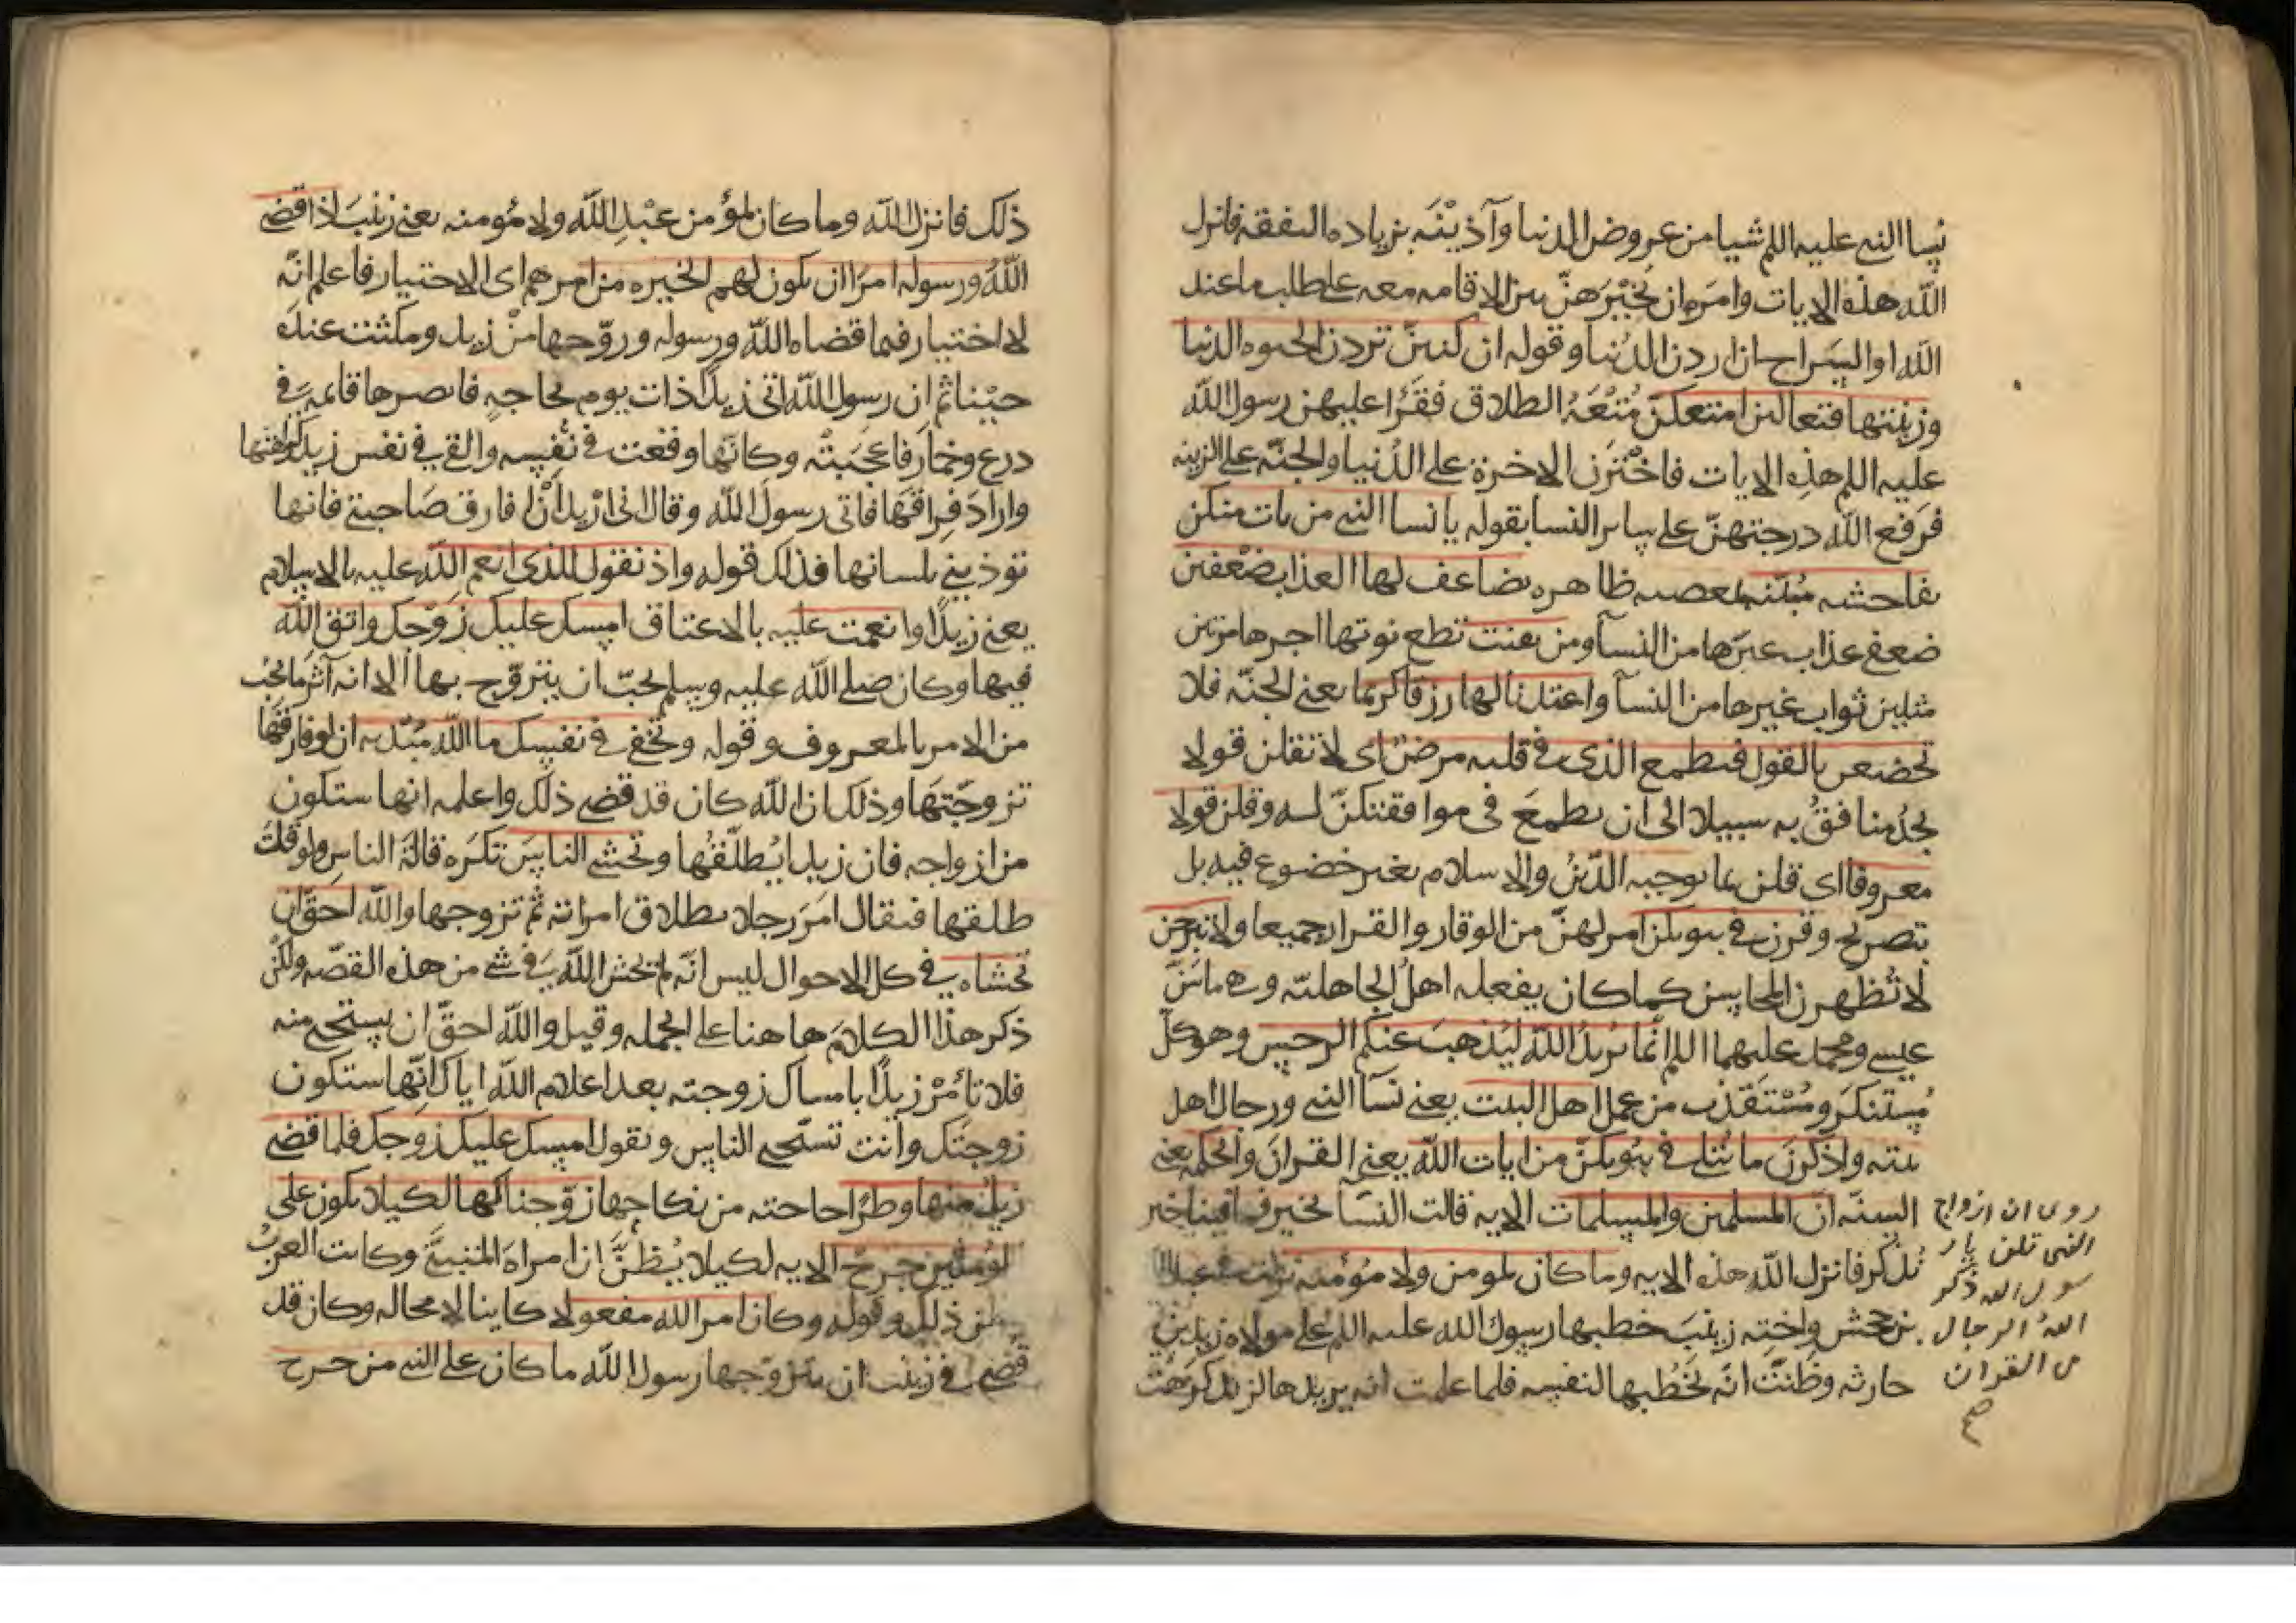 نسا النبي عليه اللم شيا من عروض الدنيا وآذينه بزياده النفقه فانزل
الله هذه الايات وامره ان يخيرهن بين الاقامه معه على طلب ما عند
الله او السراح ان اردن الدنيا وقوله ان كنتن تردن الحيوه الدنيا
وزينتها فتعالين امتعكن متعة الطلاق فقرا عليهن رسول الله
عليه اللم هذه الايات فاخترن الاخرة على الدنيا والجنه على الزينه
فرفع الله درجتهن على ساير النسا بقوله يا نسا النبي من يات منكن
بفاحشه مبينه بمعصيه ظاهره يضاعف لها العذاب ضعفين
ضعفي عذاب غيرها من النسآ ومن يقنت تطع نوتها اجرها مرتين
مثلين ثواب غيرها من النسآ واعتدنا لها رزقا كريما يعني الجنه فلا
تخضعن بالقول فيطمع الذي في قلبه مرض اي لا تقلن قولا
يجد منافق به سبيلا الى ان يطمع في موافقتكن له وقلن قولا
معروفا اي قلن بما يوجبه الدين والاسلام بغير خضوع فيه بل
بتصريح وقرن في بيوتكن امر لهن من الوقار والقرار جميعا ولا تبرجن
لا تظهرن المحاسن كما كان يفعله اهل الجاهليه وهي ما بين
عيسى ومحمد عليهما اللم انما يريد الله ليذهب عنكم الرجس وهو كل
مستنكر ومستقذر من عمل اهل البيت يعني نسآ النبي ورجال اهل
بيته واذكرن ما يتلى في بيوتكن من ايات الله يعني القران والحكمه يعني
السنه ان المسلمين والمسلمات الايه قالت النسآ بخير فما فينا خير
نذكر فانزل الله هذه الايه وما كان لمومن ولا مؤمنه نزلت في عبد الله
بن جحش واخته زينب خطبها رسول الله عليه اللم على مولاه زيد بن
حارثه وظنت انه يخطبها لنفسه فلما علمت انه يريدها لزيد كرهت
روى ان ازواج
النبي قلن يا ر
سول الله ذكر
الله الرجال
في القران
صح
ذلك فانزل الله وما كان لمؤمن عبد الله ولا مؤمنه يعني زينب اذا قضى
الله ورسوله امرا ان يكون لهم الخيره من امرهم اي الاختيار فاعلم انه
لا اختيار فيما قضاه الله ورسوله وزوجها من زيد ومكثت عنده
حينا ثم ان رسول الله اتى زيدا ذات يوم لحاجه فابصرها قايمه في
درع وخمار فاعجبته وكانها وقعت في نفسه والقي في نفس زيد كراهتها
واراد فراقها فاتى رسول الله وقال اني اريد ان افارق صاحبتي فانها
توذيني بلسانها فذلك قوله واذ تقول للذي انعم الله عليه بالاسلام
يعني زيدا وانعمت عليه بالاعتاق امسك عليك زوجك واتق الله
فيها وكان صلى الله عليه وسلم يحب ان يتزوج بها الا انه آثر ما يجب
من الامر بالمعروف وقوله وتخفي في نفسك ما الله مبديه ان لو فارقها
تزوجتها وذلك ان الله كان قد قضى ذلك واعلمه انها ستكون
من ازواجه فان زيدا يطلقها وتخشى الناس تكره قالة الناس ولو قلت
طلقها فيقال امر رجلا بطلاق امراته ثم تزوجها والله احق ان
تخشاه في كل الاحوال ليس انه لم يخش الله في شي من هذه القصه ولكن
ذكر هذا الكلام هاهنا على الجمله وقيل والله احق ان يستحي منه
فلا تأمر زيدا بامساك زوجته بعد اعلام الله اياك انها ستكون
زوجتك وانت تستحي الناس وتقول امسك عليك زوجك فلما قضى
زيد منها وطرا حاجته من نكاحها زوجناكها لكيلا يكون على
المومنين حرج الايه لكيلا يظن ان امراة المتبنى وكانت العرب
تظن ذلك وقوله وكان امر الله مفعولا كاينا لا محاله وكان قد
قضى في زينب ان يتزوجها رسول الله ما كان على النبي من حرج